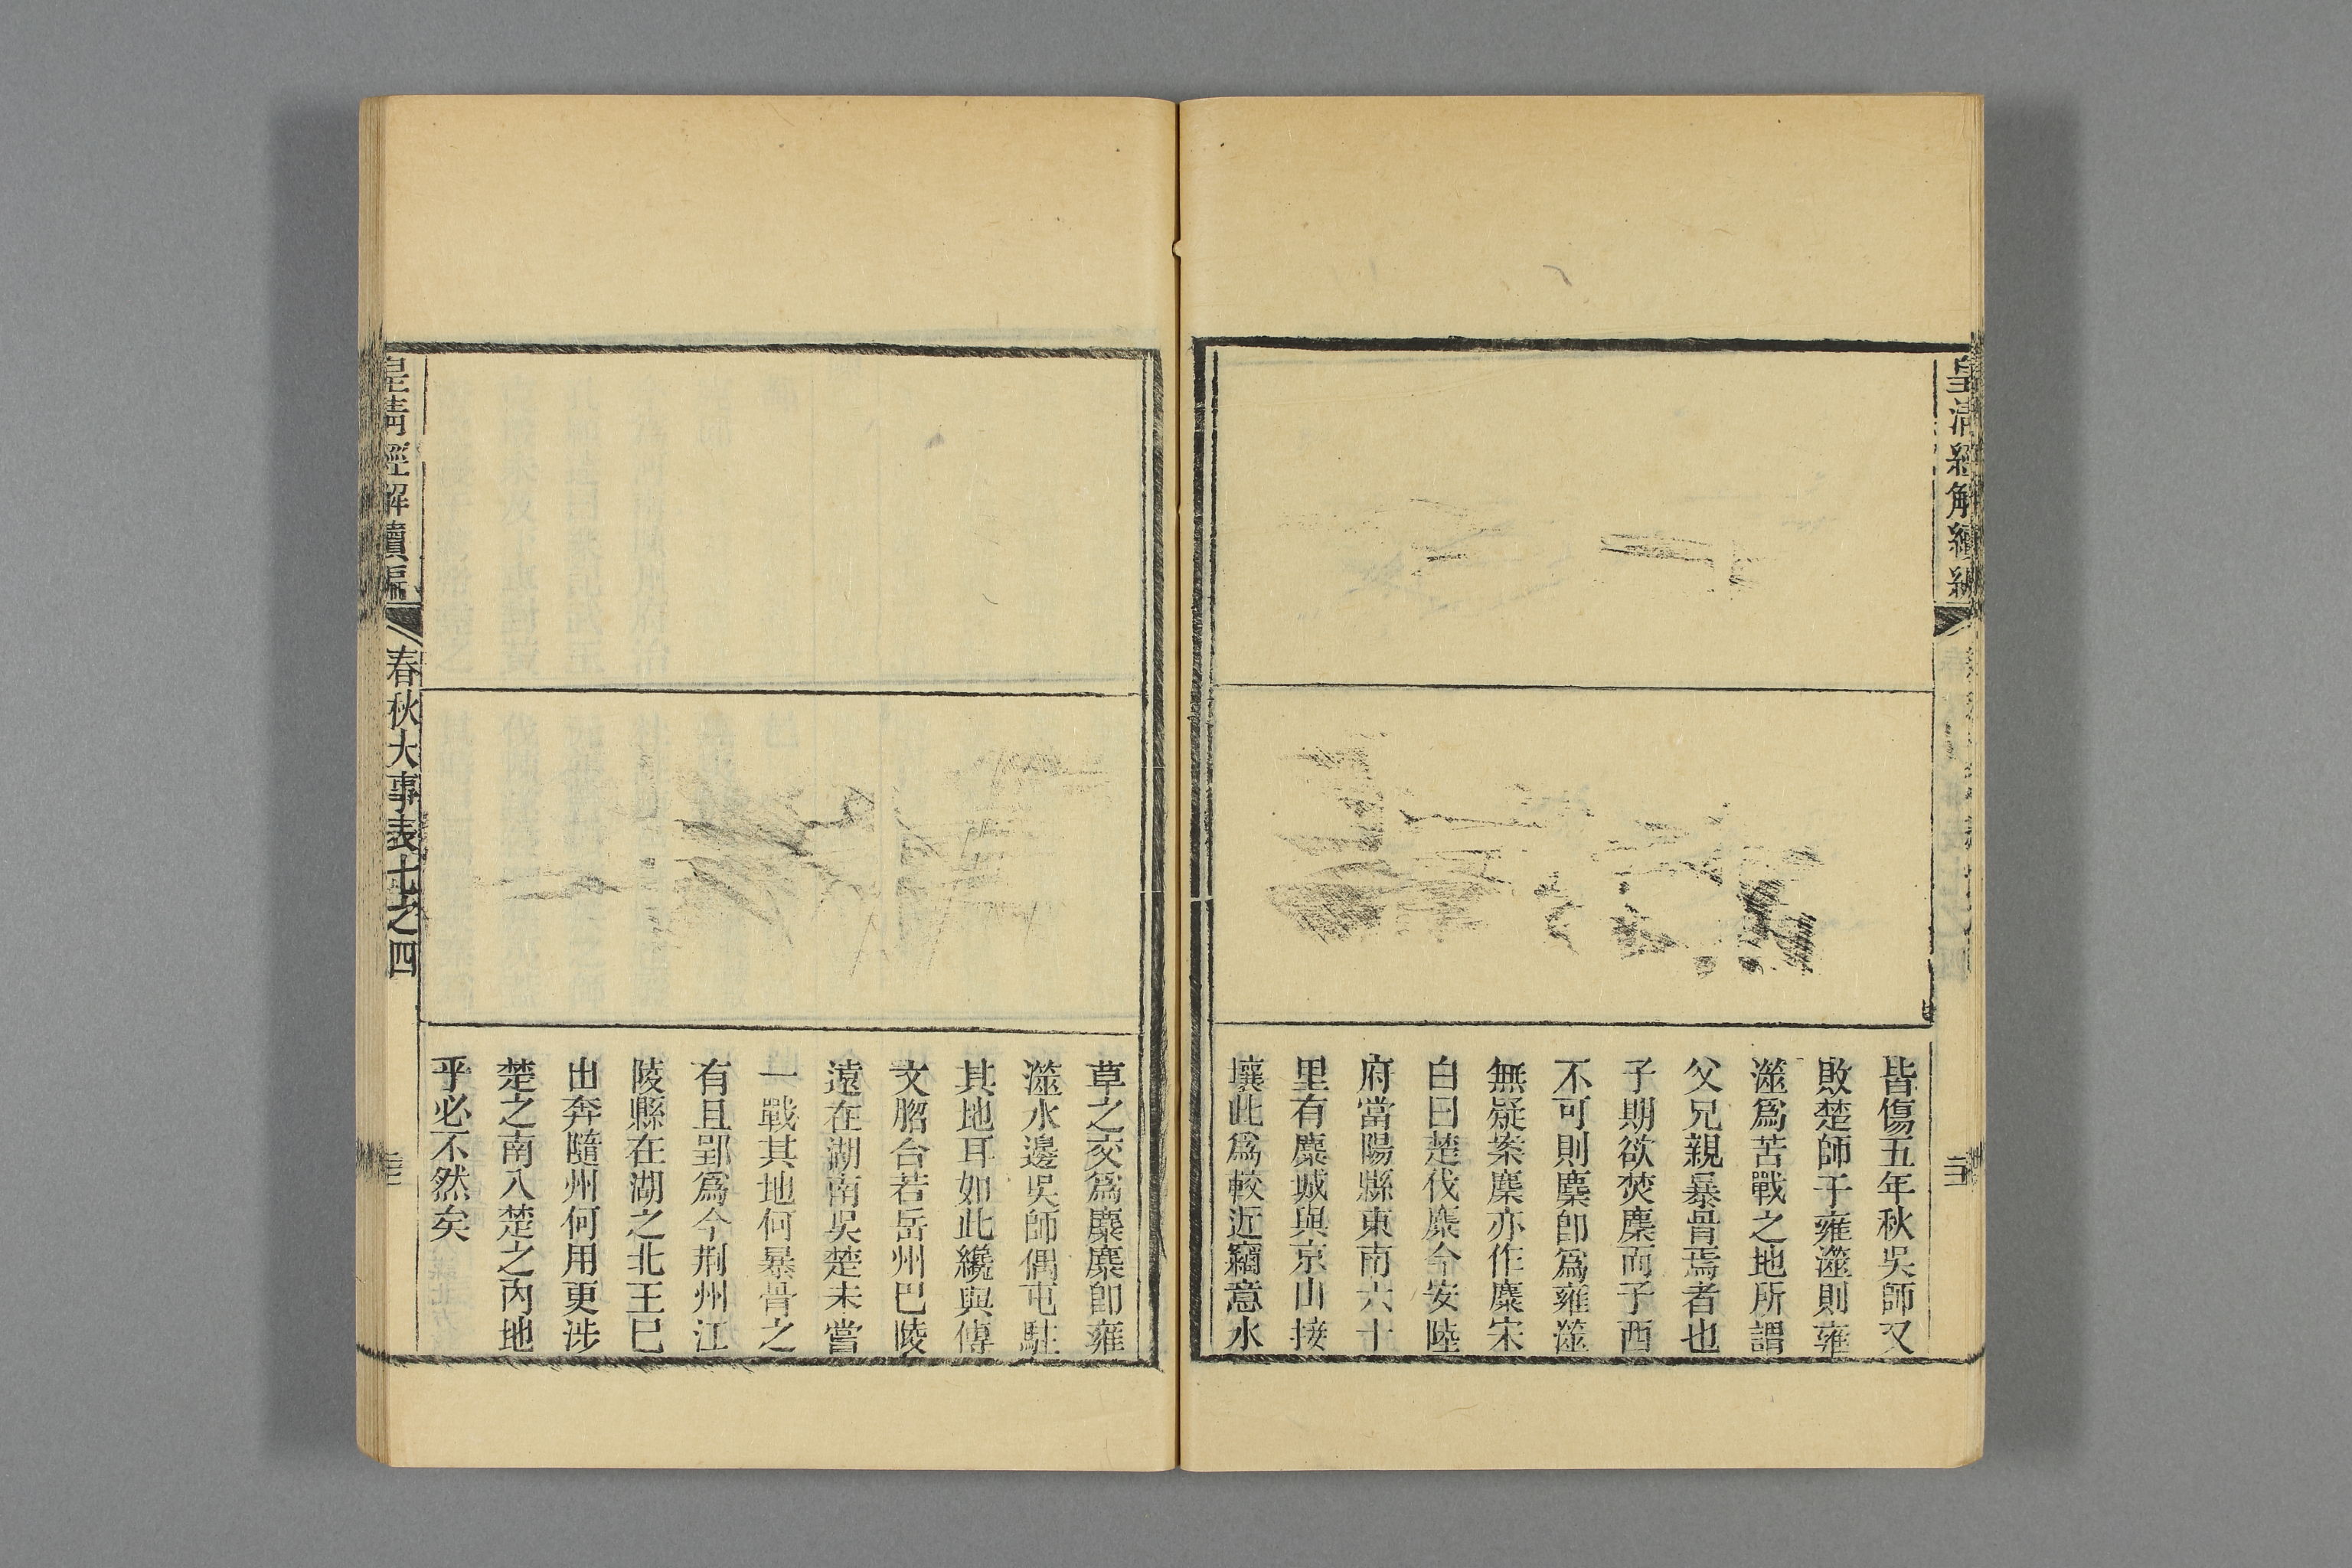 皇清經解續編
皆傷五年秋吳師又
敗楚師于雍澨則雍
澨爲苦戰之地所謂
父兄親暴骨焉者也
子期欲焚麇而子西
不可則麇卽爲雍澨
無疑案麇亦作麋宋
白曰楚伐麇今安陸
府當陽縣東南六十
里有麋城與京山接
壤此爲較近竊意水
草之交爲麋麋卽雍
澨水邊吳師偶屯駐
其地耳如此纔與傳
文脗合若岳州巴陵
遠在湖南吳楚未嘗
一戰其地何暴骨之
有且郢爲今荆州江
陵縣在湖之北王已
出奔隨州何用更涉
楚之南入楚之內地
乎必不然矣
皇清經解續編
春秋大事表七之四